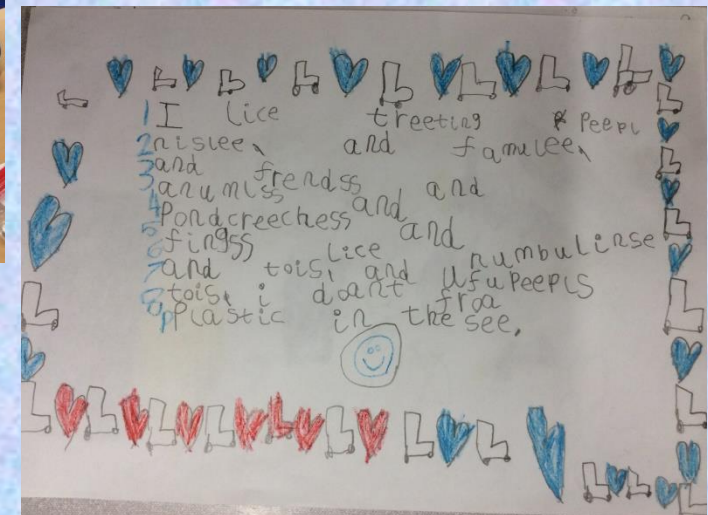 1 I lice treeting peepl
2 nislee, and famulee,
3 and frendss and
4 anumlss and
5 Pondcreechess and
6 fingss lice numbulinse
7 and tois, and ufupeepls
8 tois, i doant froa
9 pplastic in the see,